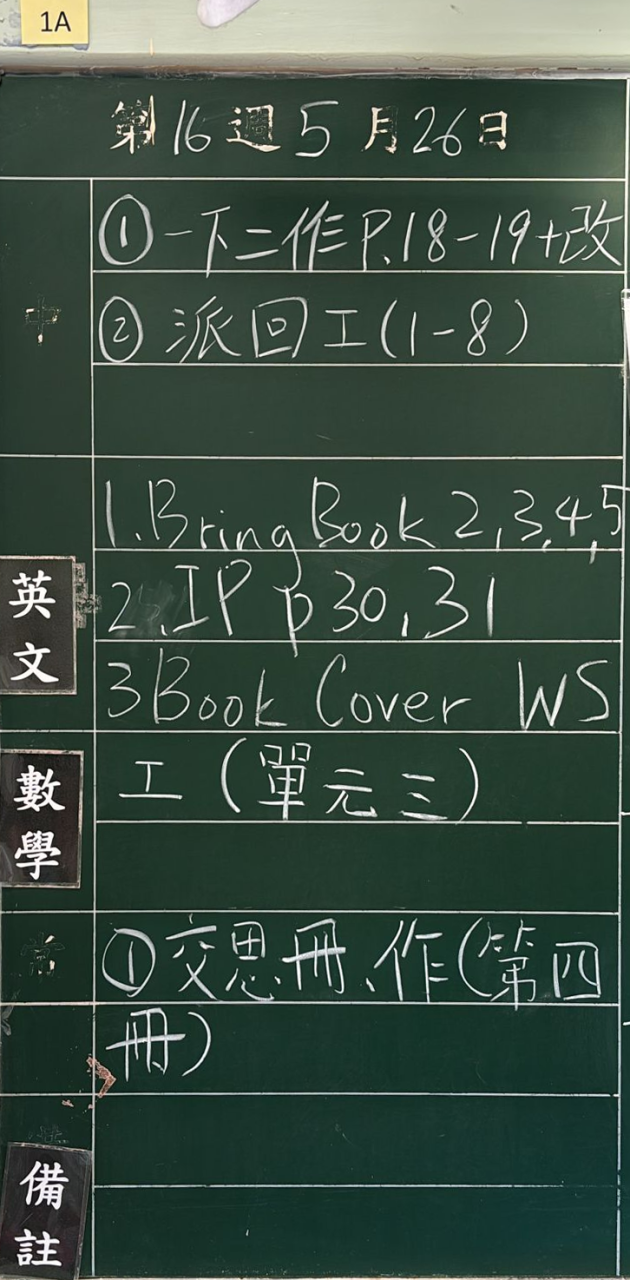 1A
第16週5月26日
①一下二作P.18-19+改
中
②派回工(1-8)
1.Bring Book 2,3,4,5
英文
2.IP p30,31
3Book Cover WS
數學
工(單元三)
常
①交思冊、作(第四
冊)
備註